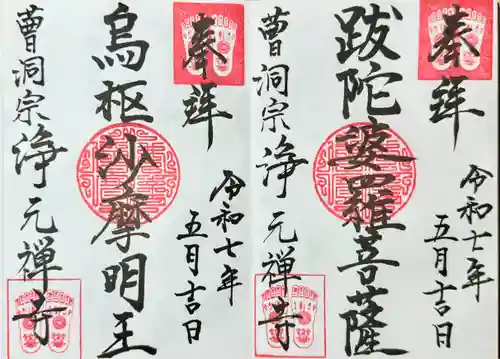 奉拝
跋陀婆羅菩薩
令和七年
五月吉日
曹洞宗 浄元禅寺
奉拝
烏枢沙摩明王
令和七年
五月吉日
曹洞宗 浄元禅寺